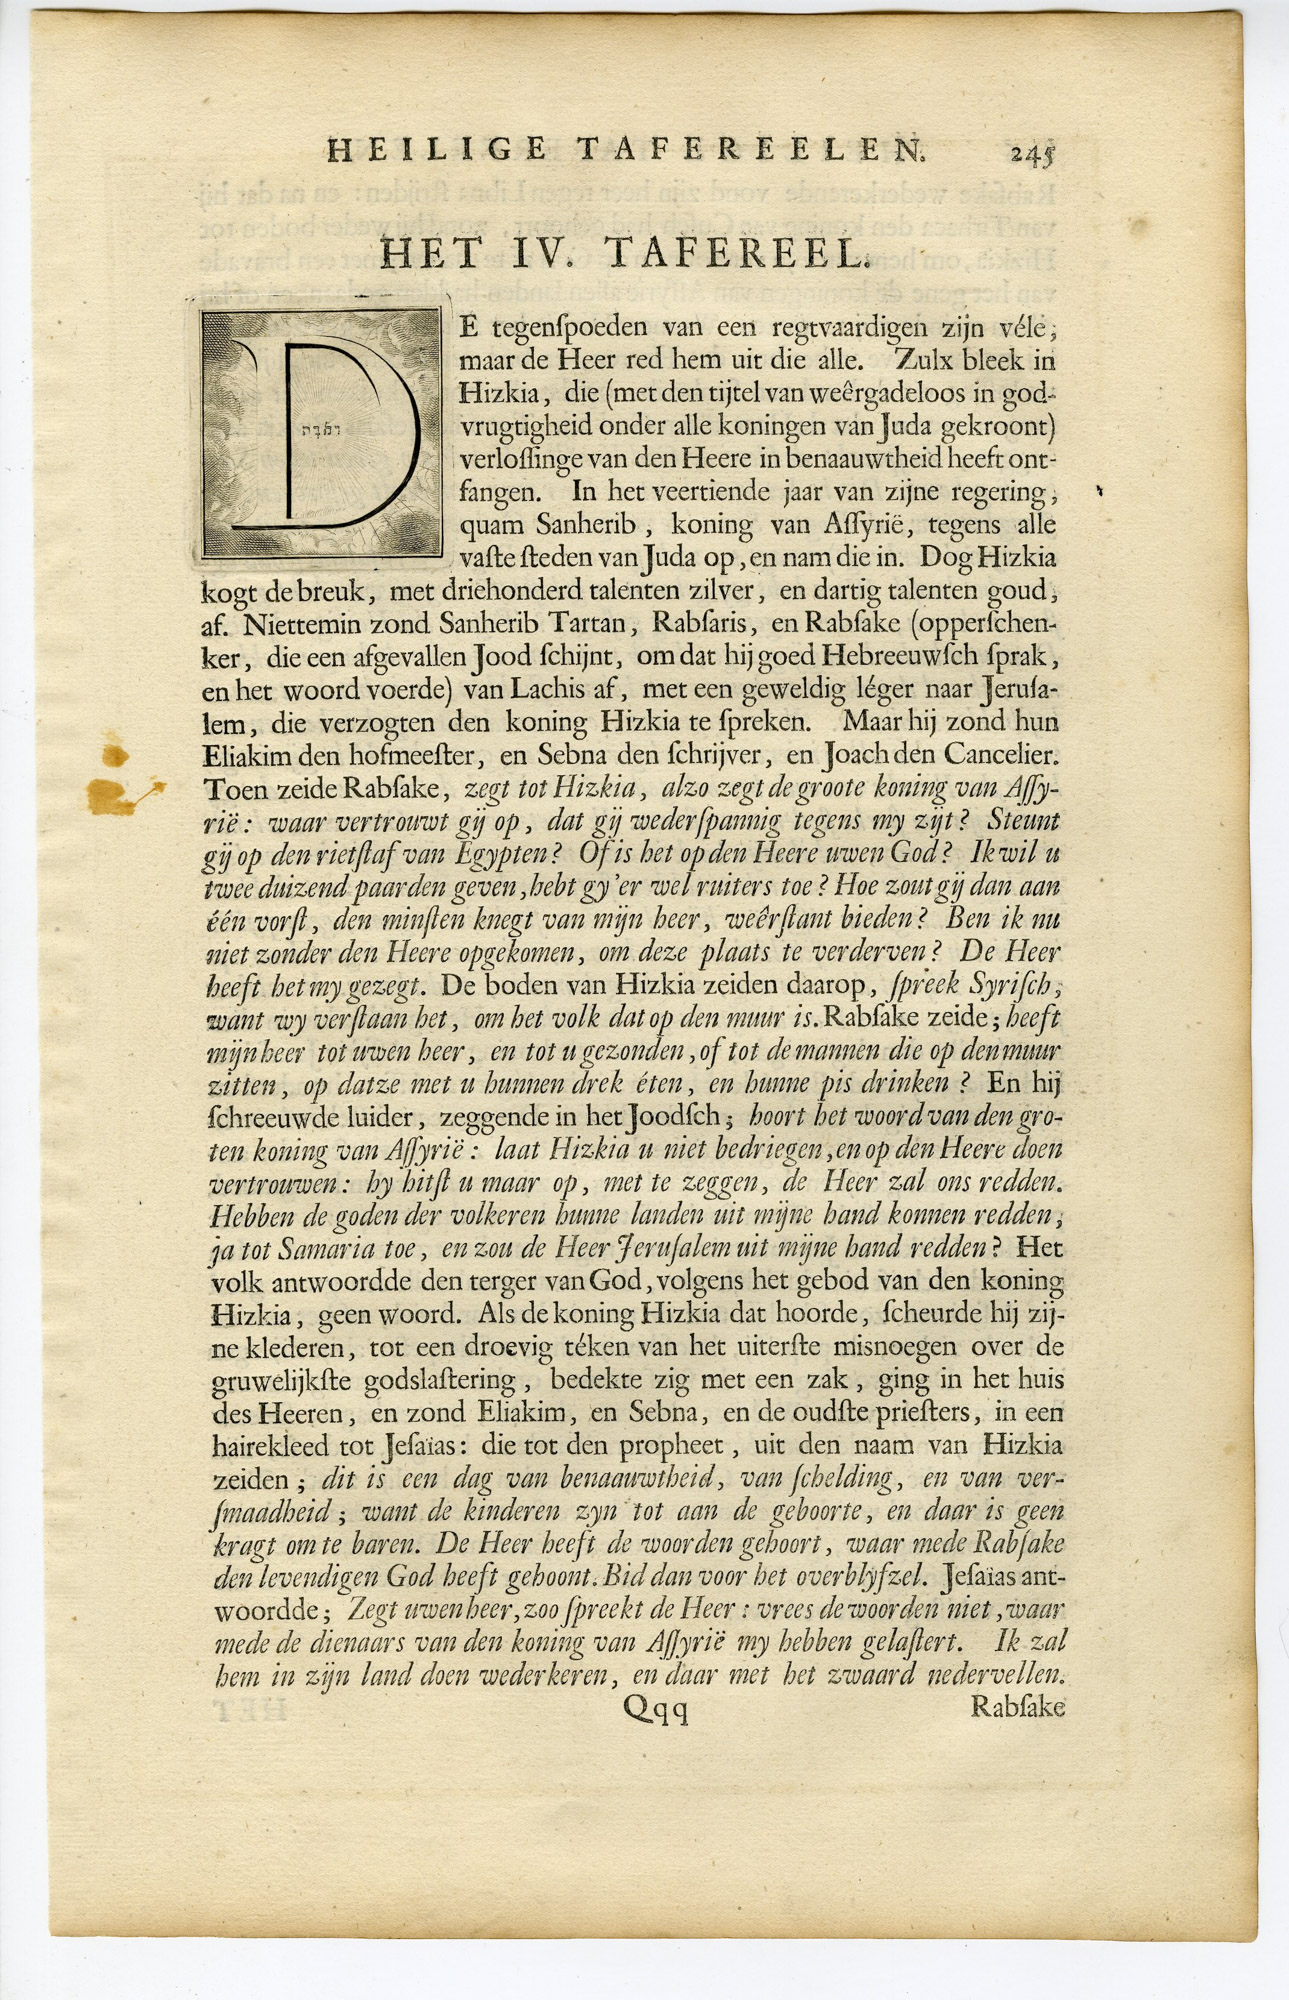 HEILIGE TAFEREELEN. 245
HET IV. TAFEREEL.
DE tegenſpoeden van een regtvaardigen zijn véle,
maar de Heer red hem uit die alle. Zulx bleek in
Hizkia, die (met den tijtel van weêrgadeloos in god-
vrugtigheid onder alle koningen van Juda gekroont)
verloſſinge van den Heere in benaauwtheid heeft ont-
fangen. In het veertiende jaar van zijne regering,
quam Sanherib, koning van Aſſyrië, tegens alle
vaſte ſteden van Juda op, en nam die in. Dog Hizkia
kogt de breuk, met driehonderd talenten zilver, en dartig talenten goud,
af. Niettemin zond Sanherib Tartan, Rabſaris, en Rabſake (opperſchen-
ker, die een afgevallen Jood ſchijnt, om dat hij goed Hebreeuwſch ſprak,
en het woord voerde) van Lachis af, met een geweldig léger naar Jeruſa-
lem, die verzogten den koning Hizkia te ſpreken. Maar hij zond hun
Eliakim den hofmeeſter, en Sebna den ſchrijver, en Joach den Cancelier.
Toen zeide Rabſake, zegt tot Hizkia, alzo zegt de groote koning van Aſſy-
rië: waar vertrouwt gij op, dat gij wederſpannig tegens my zijt? Steunt
gij op den rietſtaf van Egypten? Of is het op den Heere uwen God? Ik wil u
twee duizend paarden geven, hebt gy 'er wel ruiters toe? Hoe zout gij dan aan
één vorſt, den minſten knegt van mijn heer, weêrſtant bieden? Ben ik nu
niet zonder den Heere opgekomen, om deze plaats te verderven? De Heer
heeft het my gezegt. De boden van Hizkia zeiden daarop, ſpreek Syriſch,
want wy verſtaan het, om het volk dat op den muur is. Rabſake zeide; heeft
mijn heer tot uwen heer, en tot u gezonden, of tot de mannen die op den muur
zitten, op datze met u hunnen drek éten, en hunne pis drinken? En hij
ſchreeuwde luider, zeggende in het Joodſch; hoort het woord van den gro-
ten koning van Aſſyrië: laat Hizkia u niet bedriegen, en op den Heere doen
vertrouwen: hy hitſt u maar op, met te zeggen, de Heer zal ons redden.
Hebben de goden der volkeren hunne landen uit mijne hand konnen redden,
ja tot Samaria toe, en zou de Heer Jeruſalem uit mijne hand redden? Het
volk antwoordde den terger van God, volgens het gebod van den koning
Hizkia, geen woord. Als de koning Hizkia dat hoorde, ſcheurde hij zij-
ne klederen, tot een droevig téken van het uiterſte misnoegen over de
gruwelijkſte godslaſtering, bedekte zig met een zak, ging in het huis
des Heeren, en zond Eliakim, en Sebna, en de oudſte prieſters, in een
hairekleed tot Jeſaïas: die tot den propheet, uit den naam van Hizkia
zeiden; dit is een dag van benaauwtheid, van ſchelding, en van ver-
ſmaadheid; want de kinderen zyn tot aan de geboorte, en daar is geen
kragt om te baren. De Heer heeft de woorden gehoort, waar mede Rabſake
den levendigen God heeft gehoont. Bid dan voor het overblyfzel. Jeſaïas ant-
woordde; Zegt uwen heer, zoo ſpreekt de Heer: vrees de woorden niet, waar
mede de dienaars van den koning van Aſſyrië my hebben gelaſtert. Ik zal
hem in zijn land doen wederkeren, en daar met het zwaard nedervellen.
Qqq Rabſake